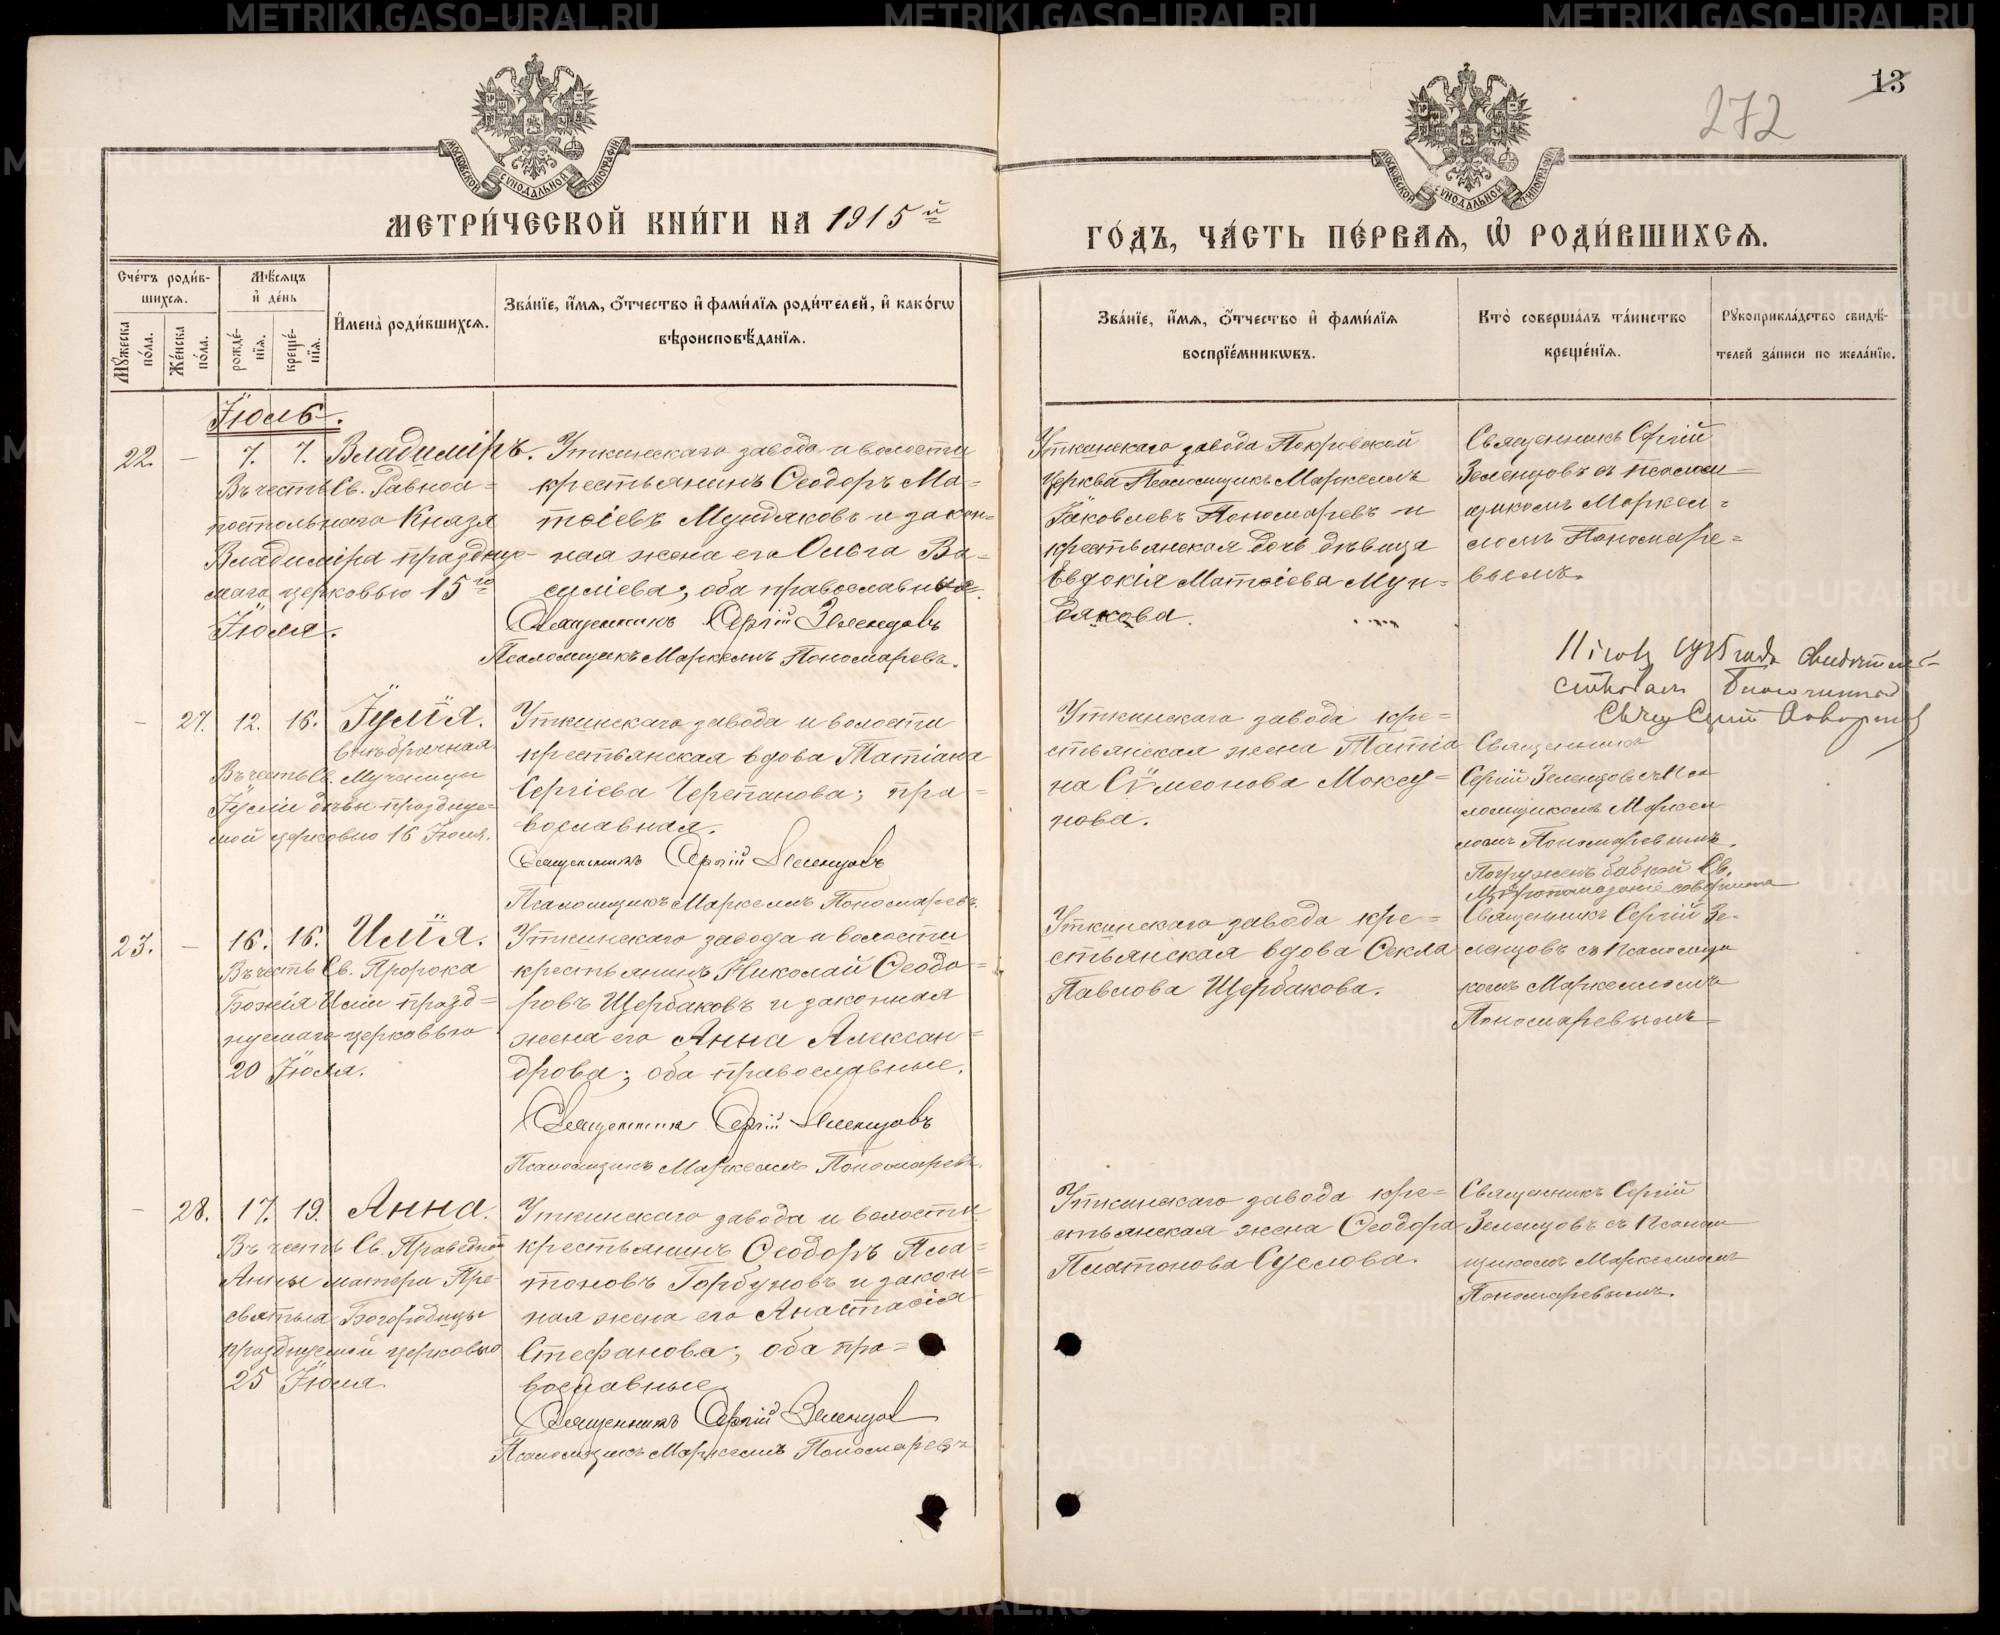 13
272
МОСКОВСКОЙ СѴНОДАЛЬНОЙ ТИПОГРАФІИ
МОСКОВСКОЙ СѴНОДАЛЬНОЙ ТИПОГРАФІИ
МЕТРИ́ЧЕСКОЙ КНИ́ГИ НА 1915й
ГО́ДЪ, ЧА́СТЬ ПЕ́РВАЯ, Ѡ РОДИ́ВШИХСЯ.
Сче́тъ роди́в-
шихся.
Мѣ́сяцъ
и҆ де́нь
Мꙋ́жеска по́ла.
Же́нска по́ла.
рожде́-нїя.
креще́-нїя.
И҆мена̀ роди́вшихся.
Зва́нїе, и҆́мя, ѻ҆́тчество и҆ фами́лїя роди́телей, и҆ како́гѡ
вѣроисповѣ́данїя.
Зва́нїе, и҆́мя, ѻ҆́тчество и҆ фами́лїя
воспрїе́мникѡвъ.
Кто̀ соверша́лъ та́инство
креще́нїя.
Рꙋкоприкла́дство свидѣ́-
телей за́писи по жела́нїю.
Іюль.
22. — 7. 7. Владиміръ.
Въ честь Св. Равноа-
постольнаго Князя
Владиміра праздну-
маго церковью 15го
Іюля.
Уткинскаго завода и волости
крестьянинъ Ѳеодоръ Ма-
тѳіевъ Мундяковъ и закон-
ная жена его Ольга Ва-
силіева, оба православные.
Священникъ Сергій Зеленцовъ
Псаломщикъ Маркеллъ Пономаревъ.
Уткинскаго завода Покровской
церкви Псаломщикъ Маркеллъ
Іаковлевъ Пономаревъ и
крестьянская дочь дѣвица
Евдокія Матѳіева Мун-
дякова.
Священникъ Сергій
Зеленцовъ съ псалом-
щикомъ Маркел-
ломъ Пономаре-
вымъ.
11 1915 года
— 27. 12. 16. Іулія.
внѣбрачная
Въ честь Св. Мученицы
Іуліи дѣвы праздну-
мой церковью 16 Іюля.
Уткинскаго завода и волости
крестьянская вдова Татіана
Сергіева Черепанова; пра-
вославная.
Священникъ Сергій Зеленцовъ
Псаломщикъ Маркеллъ Пономаревъ.
Уткинскаго завода кре-
стьянская жена Татіа
на Сѵмеонова Моксу-
нова.
Священникъ
Сергій Зеленцовъ съ Пса
ломщикомъ Маркел
ломъ Пономаревымъ.
Погруженъ бабкой Св.
Мѵропомазаніе совершено
23. — 16. 16. Илія.
Въ честь Св. Пророка
Божія Иліи празд-
нуемаго церковью
20 Іюля.
Уткинскаго завода и волости
крестьянинъ Николай Ѳеодо-
ровъ Щербаковъ и законная
жена его Анна Алексан-
дрова; оба православные.
Священникъ Сергій Зеленцовъ
Псаломщикъ Маркеллъ Пономаревъ.
Уткинскаго завода кре-
стьянская вдова Ѳекла
Павлова Щербакова.
Священникъ Сергій Зе-
ленцовъ съ Псаломщи
комъ Маркелломъ
Пономаревымъ
— 28. 17. 19. Анна.
Въ честь Св. Праведной
Анны матери Пре-
святыя Богородицы
празднуемой церковью
25 Іюля.
Уткинскаго завода и волости
крестьянинъ Ѳеодоръ Пла-
тоновъ Горбуновъ и закон-
ная жена его Анастасія
Стефанова; оба пра-
вославные.
Священникъ Сергій Зеленцовъ
Псаломщикъ Маркеллъ Пономаревъ
Уткинскаго завода кре-
стьянская жена Ѳеодора
Платонова Суслова.
Священникъ Сергій
Зеленцовъ съ Псалом
щикомъ Маркелломъ
Пономаревымъ.